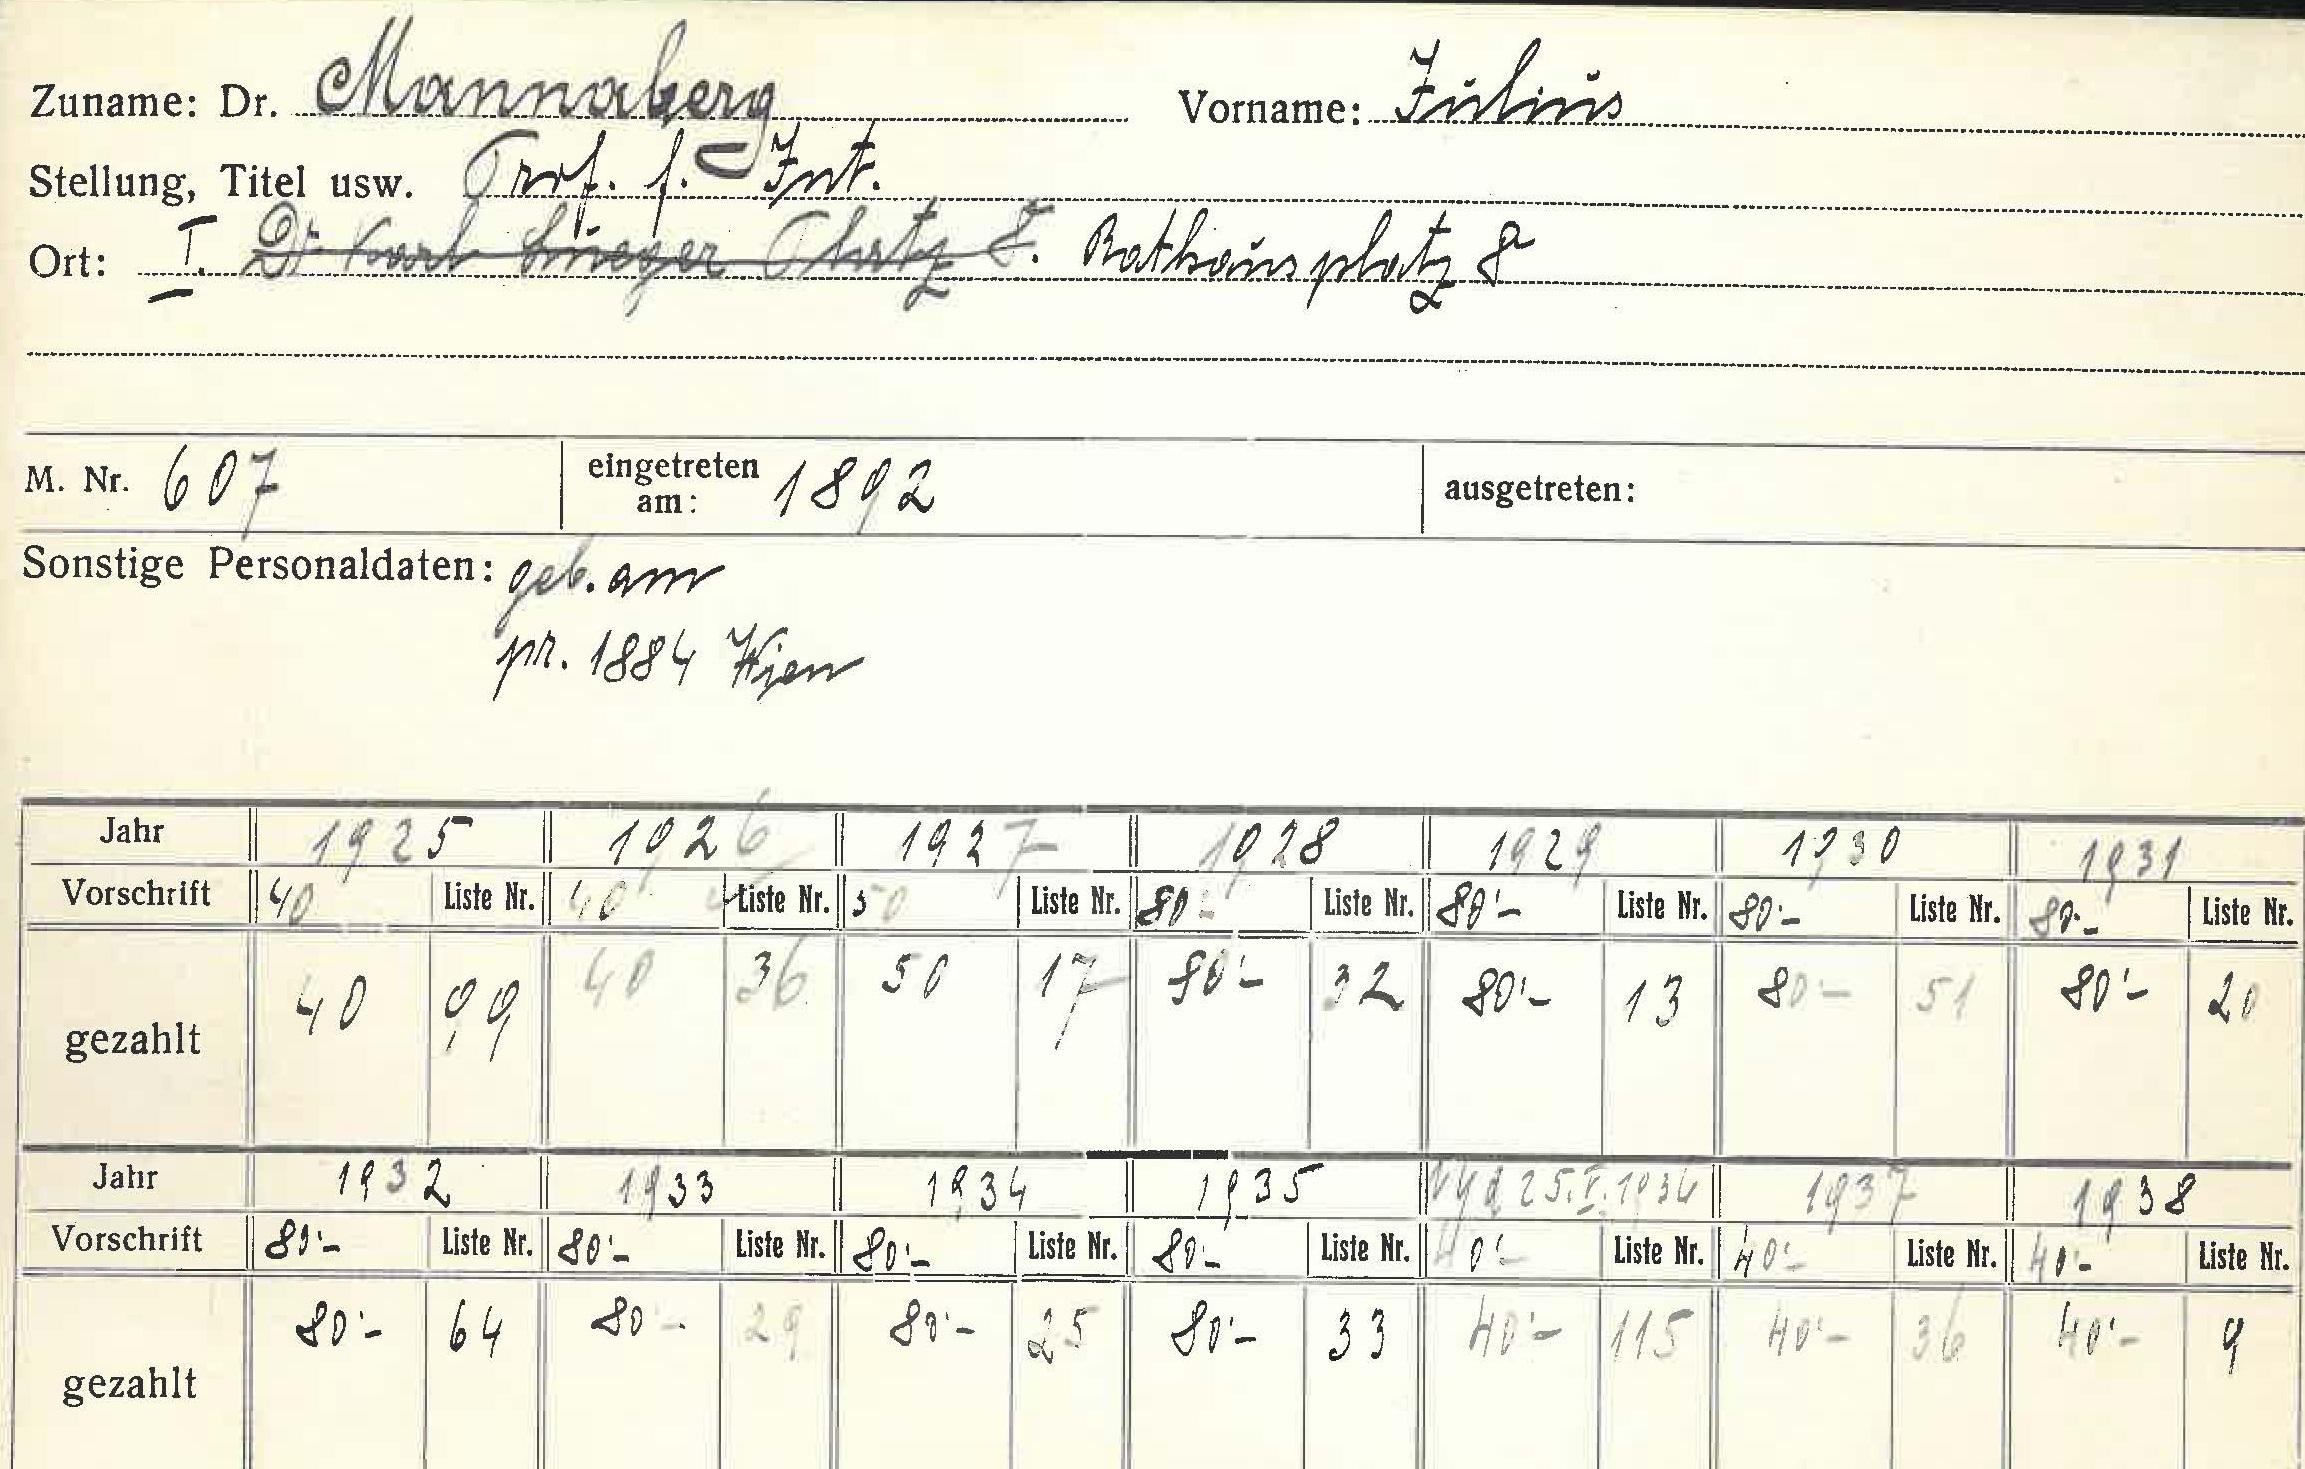 Zuname: Dr. Mannaberg Vorname: Julius
Stellung, Titel usw. Prof. f. Int.
Ort: I. Dr Karl Lueger Platz 8. Rathausplatz 8
M. Nr. 607 eingetreten am: 1892 ausgetreten:
Sonstige Personaldaten: geb. am
pr. 1884 Wien
Jahr 1925 1926 1927 1928 1929 1930 1931
Vorschrift 40 Liste Nr. 40 Liste Nr. 50 Liste Nr. 80.- Liste Nr. 80.- Liste Nr. 80.- Liste Nr. 80.- Liste Nr.
gezahlt 40 99 40 36 50 17 80.- 32 80.- 13 80.- 51 80.- 20
Jahr 1932 1933 1934 1935 25.V.1936 1937 1938
Vorschrift 80.- Liste Nr. 80.- Liste Nr. 80.- Liste Nr. 80.- Liste Nr. 40.- Liste Nr. 40.- Liste Nr. 40.- Liste Nr.
gezahlt 80.- 64 80.- 29 80.- 25 80.- 33 40.- 115 40.- 36 40.- 9